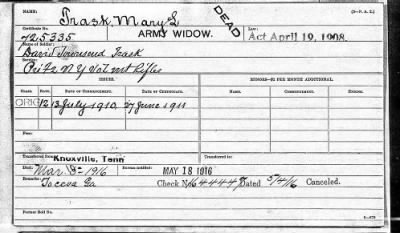 NAME: Trask, Mary L (3-P. A. L.)
DEAD
Certificate No. ARMY WIDOW. Law:
725335 Act April 19, 1908.
Name of Soldier:
David Townsend Trask
Service:
NY Vol Mt Rifles
ISSUES. MINORS—$2 PER MONTH ADDITIONAL.
CLASS. RATE. DATE OF COMMENCEMENT. DATE OF CERTIFICATE. NAME. COMMENCEMENT. ENDING.
ORIG 12 13 July 1910, 27 June 1911
Transferred from Knoxville, Tenn Transferred to:
Date: Mar 8- 1916 MAY 18 1916
Remarks: Toccoa Ga Check No Dated 5/4/16 Canceled.
Former Roll No.